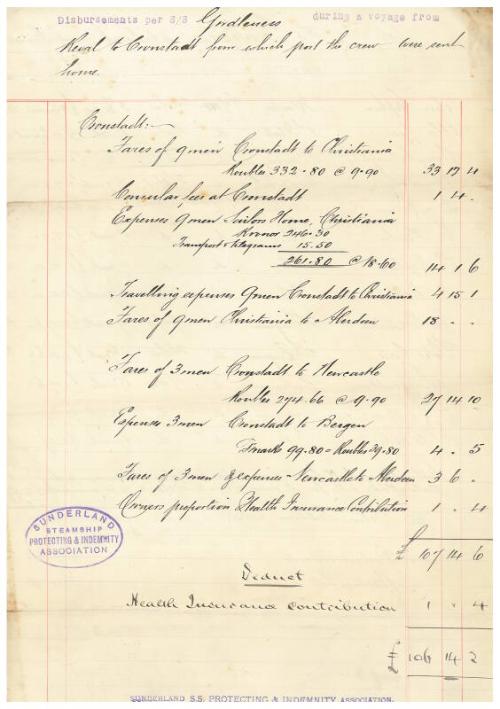 Disbursements per S/S Girdleness during a voyage from
Reval to Cronstadt from which port the crew were sent
home.
Cronstadt:—
Fares of 9 men Cronstadt to Christiania
Roubles 332.80 @ 9.90 33 12 4
Consular fees at Cronstadt 1 4 .
Expenses 9 men Sailors Home, Christiania
Kronor 246.30
Transport & telegrams 15.50
261.80 @ 18.60 14 1 6
Travelling expenses 9 men Cronstadt to Christiania 4 15 1
Fares of 9 men Christiania to Aberdeen 18 . .
Fares of 3 men Cronstadt to Newcastle
Roubles 274.66 @ 9.90 27 14 10
Expenses 3 men Cronstadt to Bergen
Fmarks 99.80 = Roubles 39.80 4 . 5
Fares of 3 men & expenses - Newcastle to Aberdeen 3 6 .
Owners proportion Health Insurance Contribution 1 . 4
£ 107 14 6
Deduct
Health Insurance contribution 1 . 4
£ 106 14 2
SUNDERLAND
STEAMSHIP
PROTECTING & INDEMNITY
ASSOCIATION
SUNDERLAND S.S. PROTECTING & INDEMNITY ASSOCIATION.